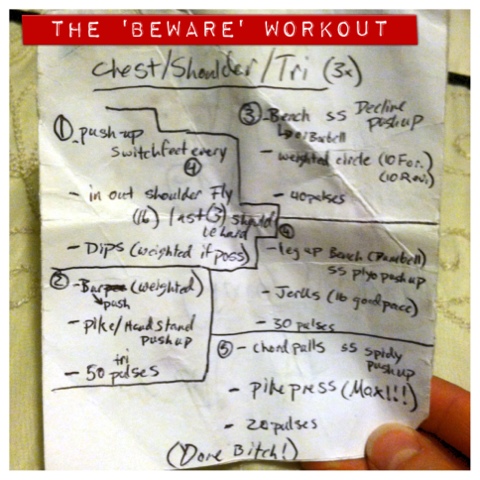 THE 'BEWARE' WORKOUT
Chest/Shoulder/Tri (3x)
① - push-up
switch feet every
④
- in out shoulder Fly
(16) last ③ should
be hard
- Dips (weighted if poss)
② - Bar (weighted)
push
- pike/Hand stand
push up
tri
- 50 pulses
③ - Bench ss Decline
pushup
Barbell
- weighted circle (10 For.)
(10 Rev.)
- 40 pulses
④
- leg up Bench (Dumbell)
ss plyo push up
- Jerks (16 good pace)
- 30 pulses
⑤ - chord pulls ss spidy
push up
- pike press (Max!!!)
- 20 pulses
(Done Bitch!)